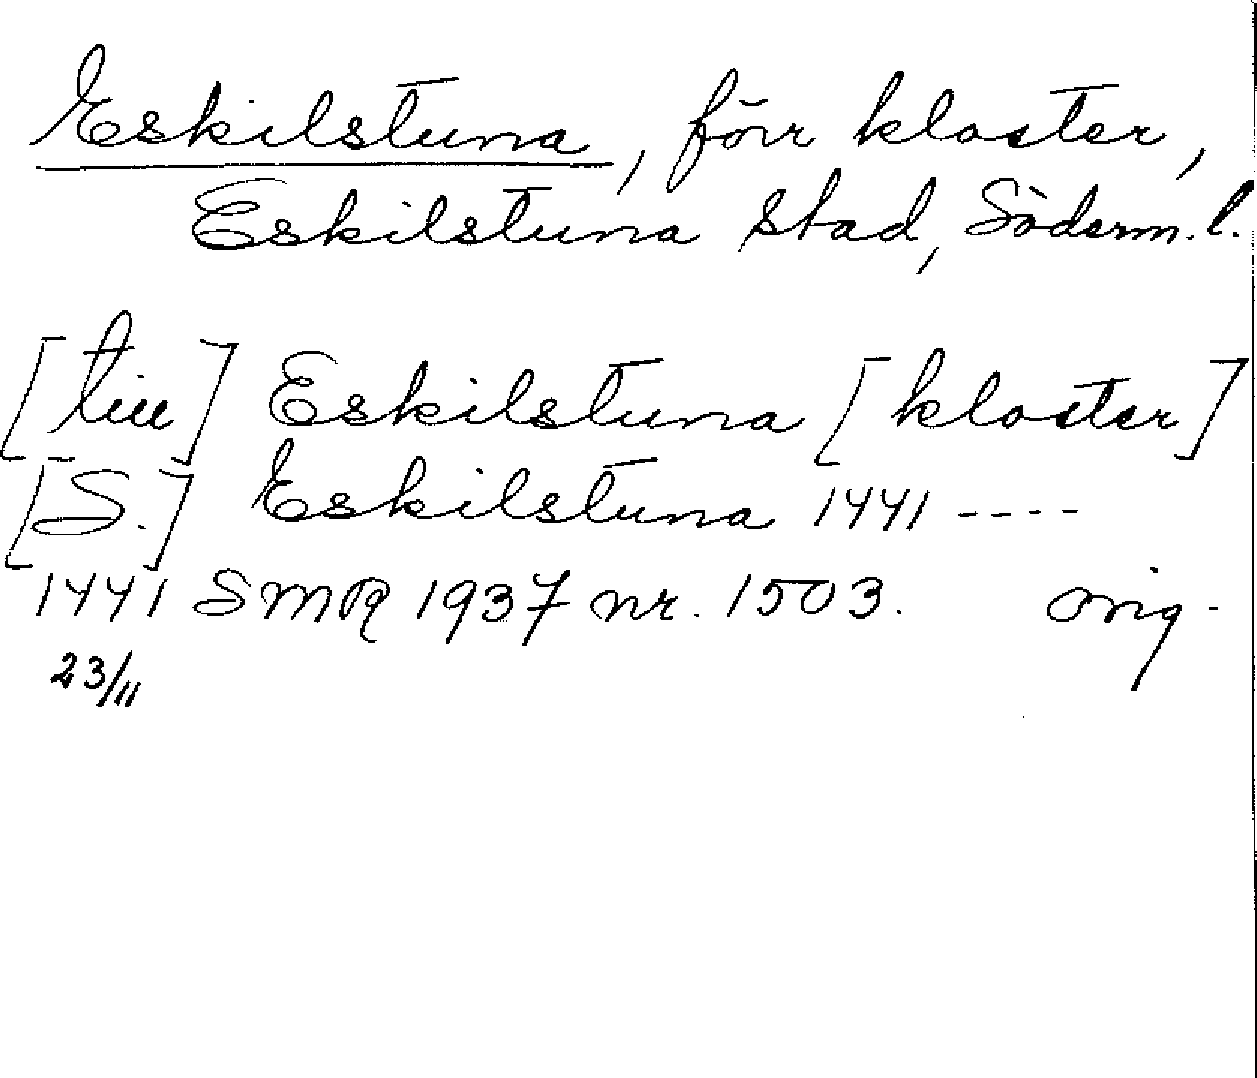 Eskilstuna, förr kloster,
Eskilstuna stad, Söderm. l.
[till] Eskilstuna [kloster]
[S.] Eskilstuna 1441 ----
1441 SMR 1937 nr. 1503. orig.
23/11